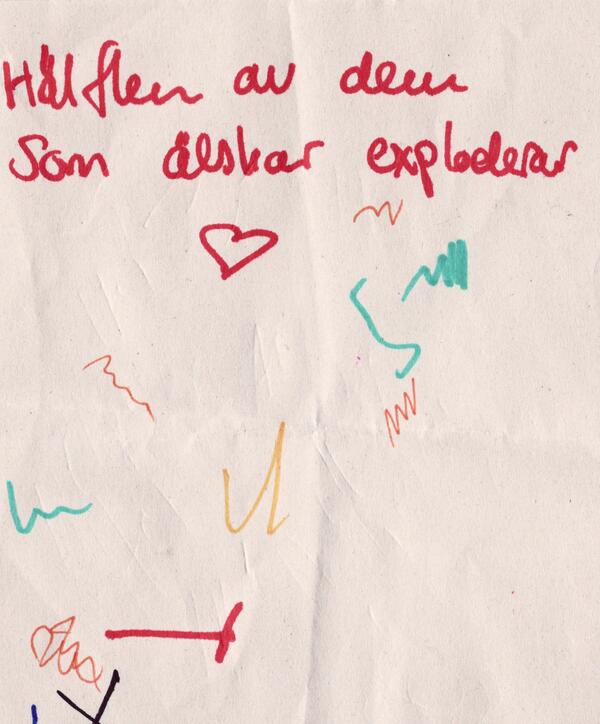 Hälften av dem
Som älskar exploderar